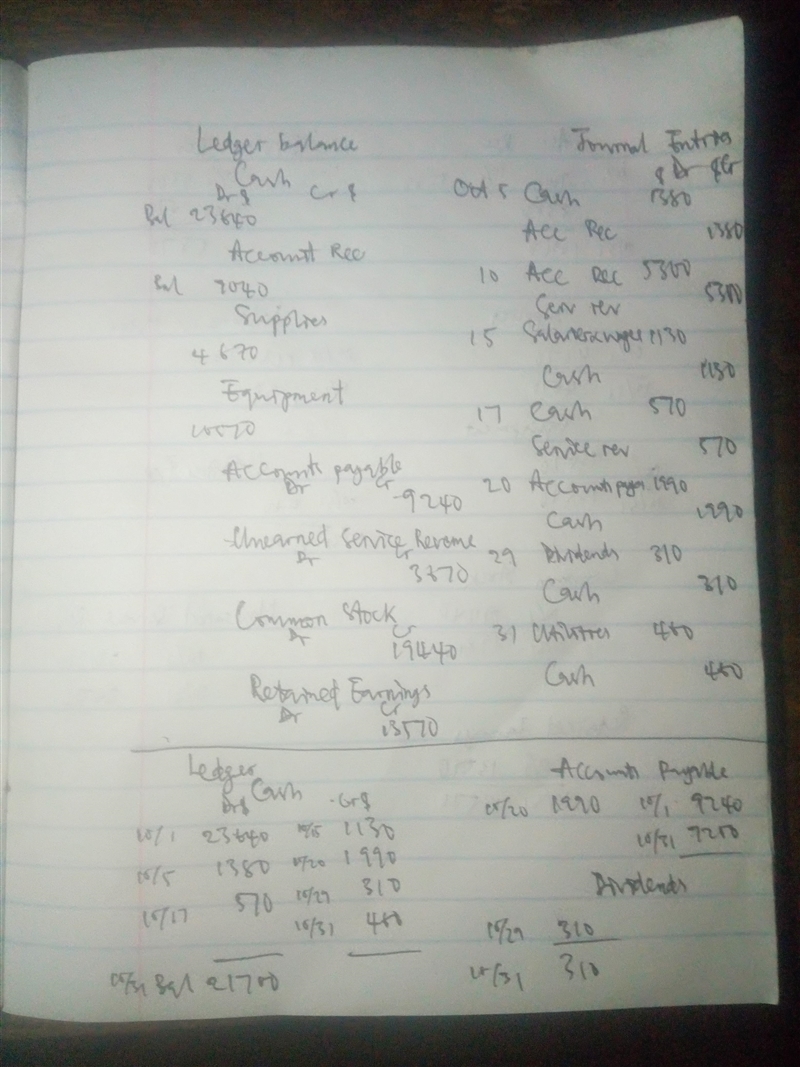 Ledger balance
Cash
Dr $ Cr $
Bal 23640
Account Rec
Bal
Supplies
4670
Equipment
Accounts payable
Dr Cr
9240
Unearned Service Revenue
Dr Cr
Common Stock
Dr Cr
19440
Retained Earnings
Dr Cr
13570
Journal Entries
$ Dr $ Cr
Oct 5 Cash 1380
Acc Rec 1380
10 Acc Rec
Serv rev
15 1130
Cash 1130
17 Cash 570
Service rev 570
20 Accounts 1990
Cash 1990
29 Dividends 310
Cash 310
31 Utilities
Cash
Ledger
Cash
Dr$ Cr$
10/1 23640 1130
10/5 1380 10/20 1990
10/17 570 10/29 310
10/31
10/31 Bal
Accounts Payable
10/20 1990 10/1 9240
10/31
Dividends
10/29 310
10/31 310